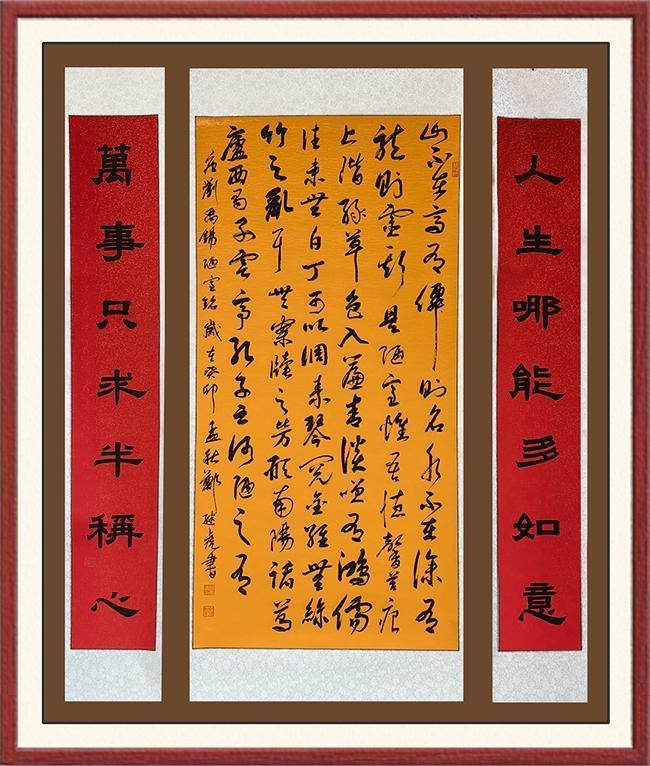 人生哪能多如意
山不在高有僊則名水不在深有
龍則靈斯是陋室惟吾德馨苔痕
上階綠草色入簾青談笑有鴻儒
往來無白丁可以調素琴閱金經無絲
竹之亂耳無案牘之勞形南陽諸葛
廬西蜀子雲亭孔子云何陋之有
唐劉禹錫陋室銘歲在癸卯孟秋鄭書
萬事只求半稱心